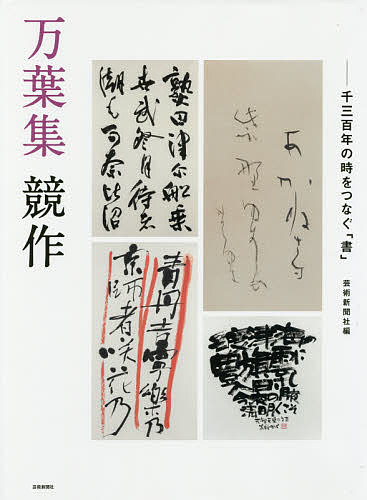 千三百年の時をつなぐ「書」
芸術新聞社編
万葉集 競作
熟田津尓船乗
世武登月待者
潮毛可奈比沼
あかねさす
紫野ゆき
青丹吉寧樂乃
京師者咲花乃
芸術新聞社